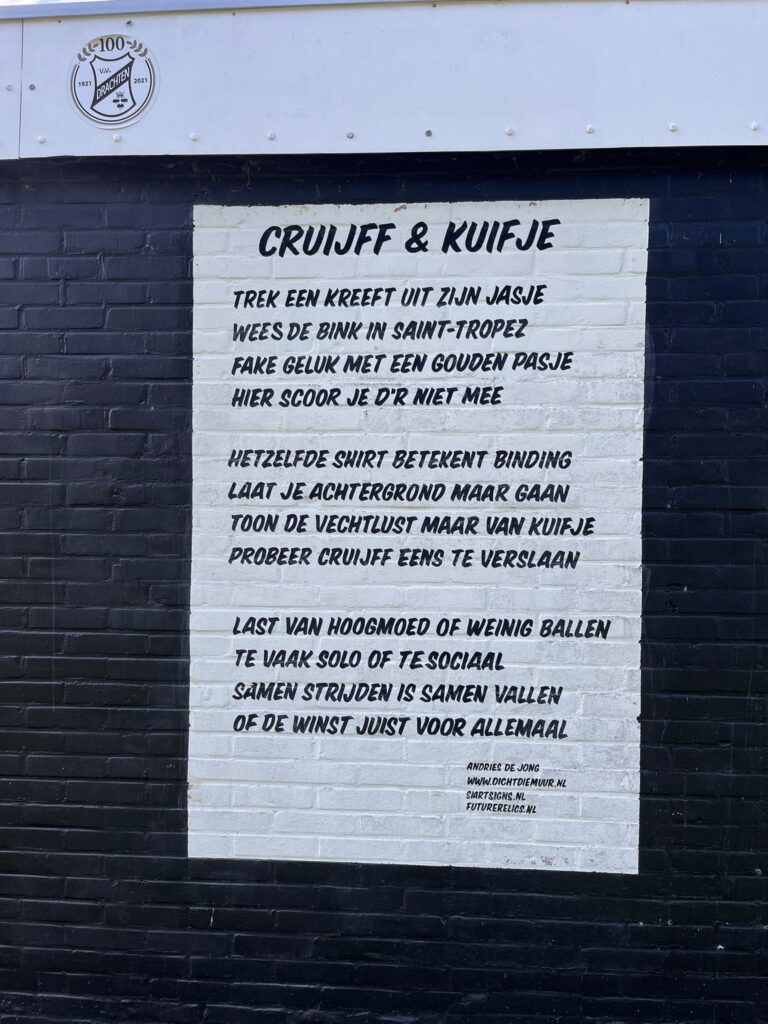 100
V.V.
DRACHTEN
1921 2021
CRUIJFF & KUIFJE
TREK EEN KREEFT UIT ZIJN JASJE
WEES DE BINK IN SAINT-TROPEZ
FAKE GELUK MET EEN GOUDEN PASJE
HIER SCOOR JE D'R NIET MEE
HETZELFDE SHIRT BETEKENT BINDING
LAAT JE ACHTERGROND MAAR GAAN
TOON DE VECHTLUST MAAR VAN KUIFJE
PROBEER CRUIJFF EENS TE VERSLAAN
LAST VAN HOOGMOED OF WEINIG BALLEN
TE VAAK SOLO OF TE SOCIAAL
SAMEN STRIJDEN IS SAMEN VALLEN
OF DE WINST JUIST VOOR ALLEMAAL
ANDRIES DE JONG
WWW.DICHTDIEMUUR.NL
SIARTSIGNS.NL
FUTURERELICS.NL